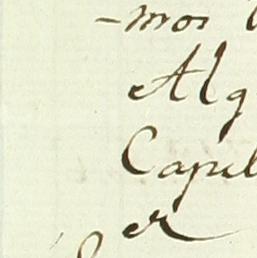 -mos
Alg
Capil
er